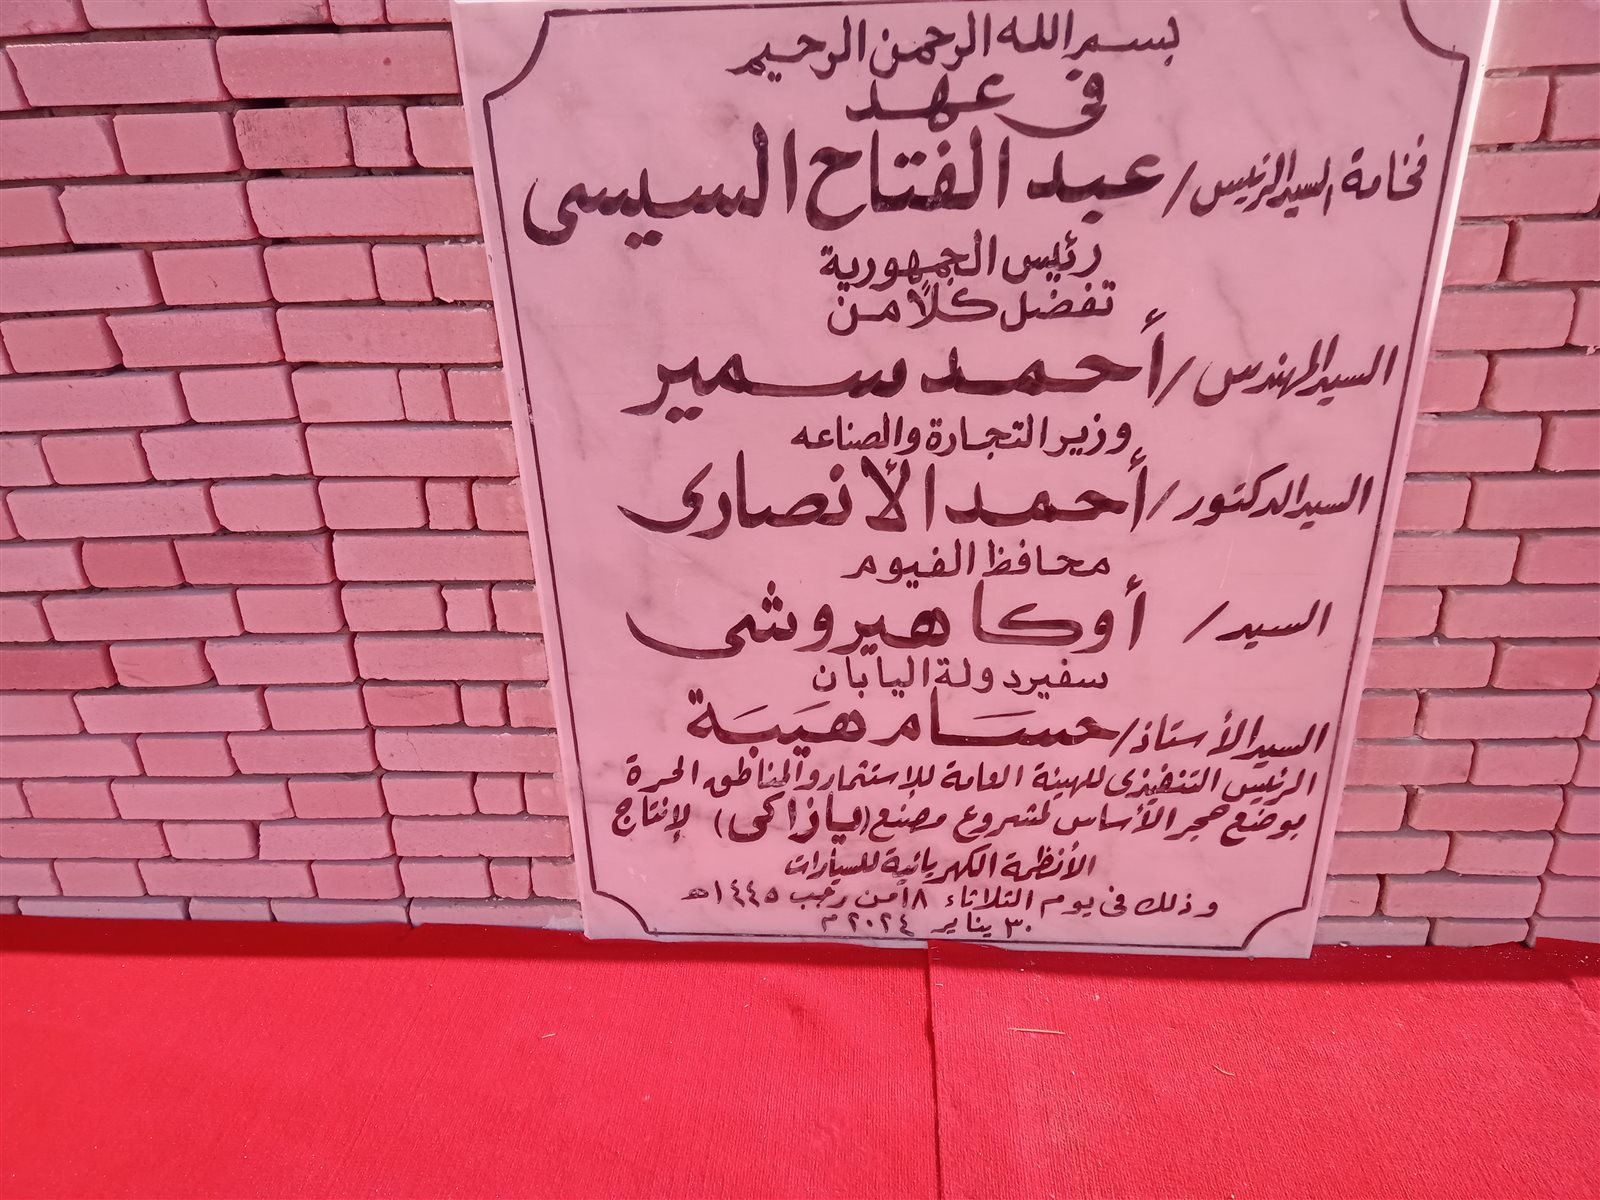 بسم الله الرحمن الرحيم
فى عهد
فخامة السيد الرئيس / عبد الفتاح السيسى
رئيس الجمهورية
تفضل كلاً من
السيد المهندس / أحمد سمير
وزير التجارة والصناعه
السيد الدكتور / أحمد الأنصارى
محافظ الفيوم
السيد / أوكا هيروشى
سفير دولة اليابان
السيد الأستاذ / حسام هَيبَة
الرئيس التنفيذى للهيئة العامة للإستثمار والمناطق الحرة
بوضع حجر الأساس لمشروع مصنع (يازاكى) لإنتاج
الأنظمة الكهربائية للسيارات
وذلك فى يوم الثلاثاء ١٨ من رجب ١٤٤٥هـ
٣٠ يناير ٢٠٢٤ م